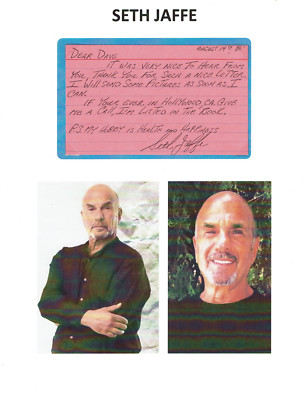 SETH JAFFE
AUGUST 14TH 85'
DEAR DAVE,
IT WAS VERY NICE TO HEAR FROM
YOU, THANK YOU FOR SUCH A NICE LETTER.
I WILL SEND SOME PICTURES AS SOON AS I
CAN.
IF YOUR EVER, IN HOLLYWOOD, CA. GIVE
ME A CALL, I'M LISTED IN THE BOOK.
P.S MY HOBBY IS HEALTH AND HAPPINESS
Seth Jaffe